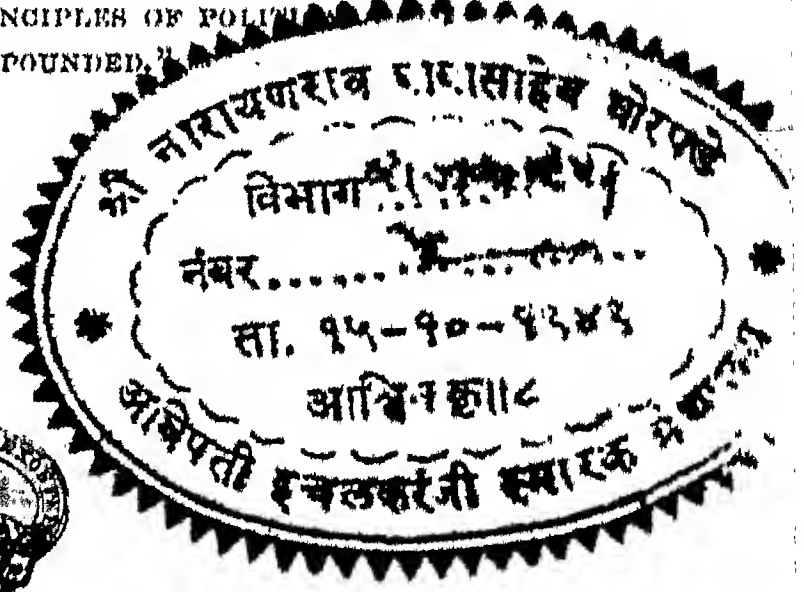 NCIPLES OF POLITI
POUNDED."
श्री नारायणराव बाबासाहेब घोरपडे
विभाग
नंबर
ता. १५-१०-१९४९
आश्विन कृ॥८
अधिपती इचलकरंजी स्मारक ग्रंथालय